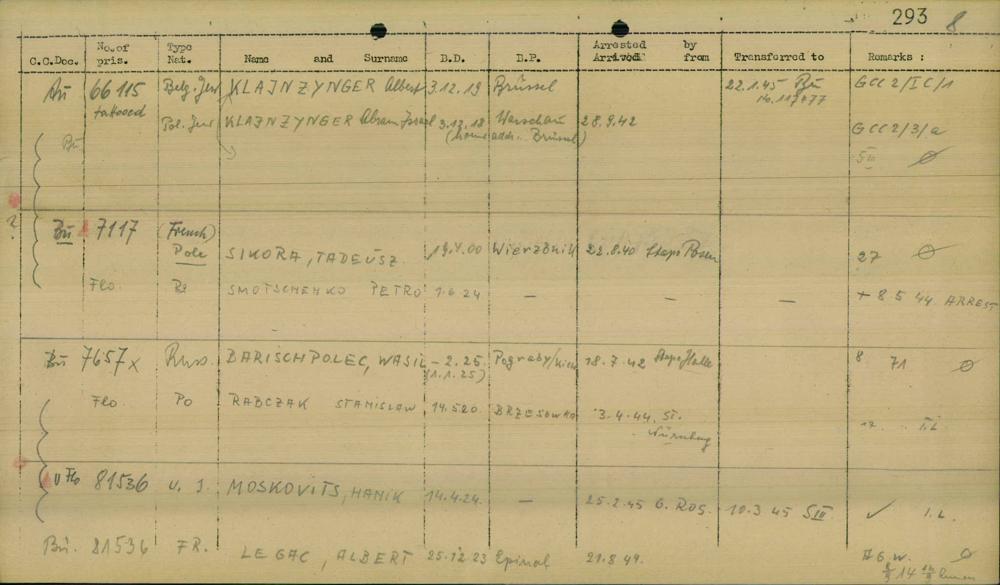 293 8
C.C.Doc. No. of pris. Type Nat. Name and Surname B.D. B.P. Arrested Arrived by from Transferred to Remarks :
Au 66115 Belg. Jew KLAJNZYNGER Albert 3.12.19 Brüssel 22.1.45 Bu GCC 2/IC/1
tattooed No. 117477
Pol. Jew KLAJNZYNGER Abram Israel 3.12.18 Warschau 28.9.42 GCC 2/3/a
Bu (home addr. Brüssel)
?
Bu 7117 (French)
Pole SIKORA, TADEUSZ 19.V.00 Wierzbnik 22.8.40 Stapo Posen 27 Ø
Flo. Ru SMOTSCHENKO PETRO 1.6.24 — — — + 8.5 44. ARREST
Bu 7657 x Russ. BARISCHPOLEC, WASIL – 2.25. Pograby/Kiew 18.7.42 Stapo Halle 8 71 Ø
(1.1.25)
Flo. Po RABCZAK STANISLAW 14.5.20. BRZESOWKA 3.4.44. ST. 17. I.L
Nürnberg
Flo 81536 U. J. MOSKOVITS, HANIK 14.4.24. — 25.2.45 G. ROS. 10.3 45 SIII ✓ I.L.
Bu. 81536 FR. LE GAC, ALBERT 25.12.23 Epinal 21.8.44. Ø